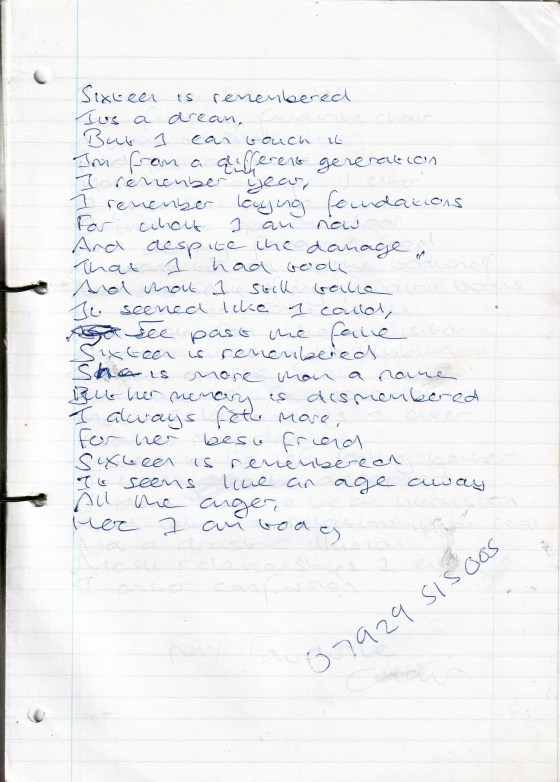 Sixteen is remembered
Its a dream,
But I can touch it
Im from a different generation
I remember that year,
I remember laying foundations
For what I am now
And despite the damage
That I had took "
And that I still take
It seemed like I could,
See past the fake
Sixteen is remembered
She is more than a name
But her memory is dismembered
I always felt more,
For her best friend
Sixteen is remembered
It seems like an age away
All the anger,
Here I am today
07929 515005